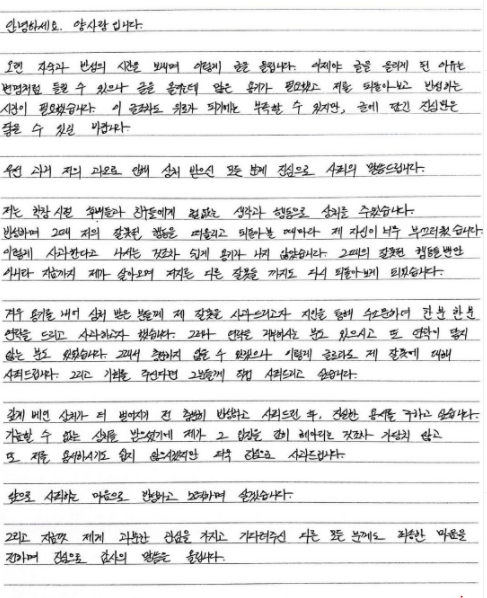 안녕하세요. 양사랑입니다.
오랜 자숙과 반성의 시간을 보내며 이렇게 글을 올립니다. 이제야 글을 올리게 된 이유는
변명처럼 들릴 수 있으나 글을 올릴만한 많은 용기가 필요했고 저를 되돌아보고 반성하는
시간이 필요했습니다. 이 글로라도 위로가 되기에는 부족할 수 있지만, 글에 담긴 진심만은
닿을 수 있길 바랍니다.
우선 과거 저의 과오로 인해 상처 받으신 모든 분께 진심으로 사죄의 말씀드립니다.
저는 학창시절 후배들과 친구들에게 철없는 생각과 행동으로 상처를 주었습니다.
반성하며 그때 저의 잘못된 행동을 떠올리고 되돌아볼 때마다 제 자신이 너무 부끄러웠습니다.
이렇게 사과한다고 나서는 것조차 쉽게 용기가 나지 않았습니다. 그때의 잘못된 행동들뿐만
아니라 지금까지 제가 살아오며 저지른 다른 잘못들 까지도 다시 되돌아보게 되었습니다.
겨우 용기를 내어 상처 받은 분들께 제 잘못을 사과드리고자 지인을 통해 수소문하며 한 분 한 분
연락을 드리고 사과하고자 했습니다. 그러나 연락을 거부하시는 분도 있으시고 또 연락이 닿지
않는 분도 있었습니다. 그래서 충분하지 않을 수 있겠으나 이렇게 글로라도 제 잘못에 대해
사죄드립니다. 그리고 기회를 주신다면 그분들께 직접 사죄드리고 싶습니다.
깊게 베인 상처가 더 벌어지기 전 충분히 반성하고 사죄드린 후, 진실한 용서를 구하고 싶습니다.
가늠할 수 없는 상처를 받으셨기에 제가 그 입장을 감히 헤아리는 것조차 가당치 않고
또 저를 용서하시기도 쉽지 않으시겠지만 거듭 진심으로 사과드립니다.
앞으로 사죄하는 마음으로 반성하고 노력하며 살겠습니다.
그리고 지금껏 제게 과분한 관심을 가지고 기다려주신 다른 모든 분께도 죄송한 마음을
전하며 진심으로 감사의 말씀을 올립니다.